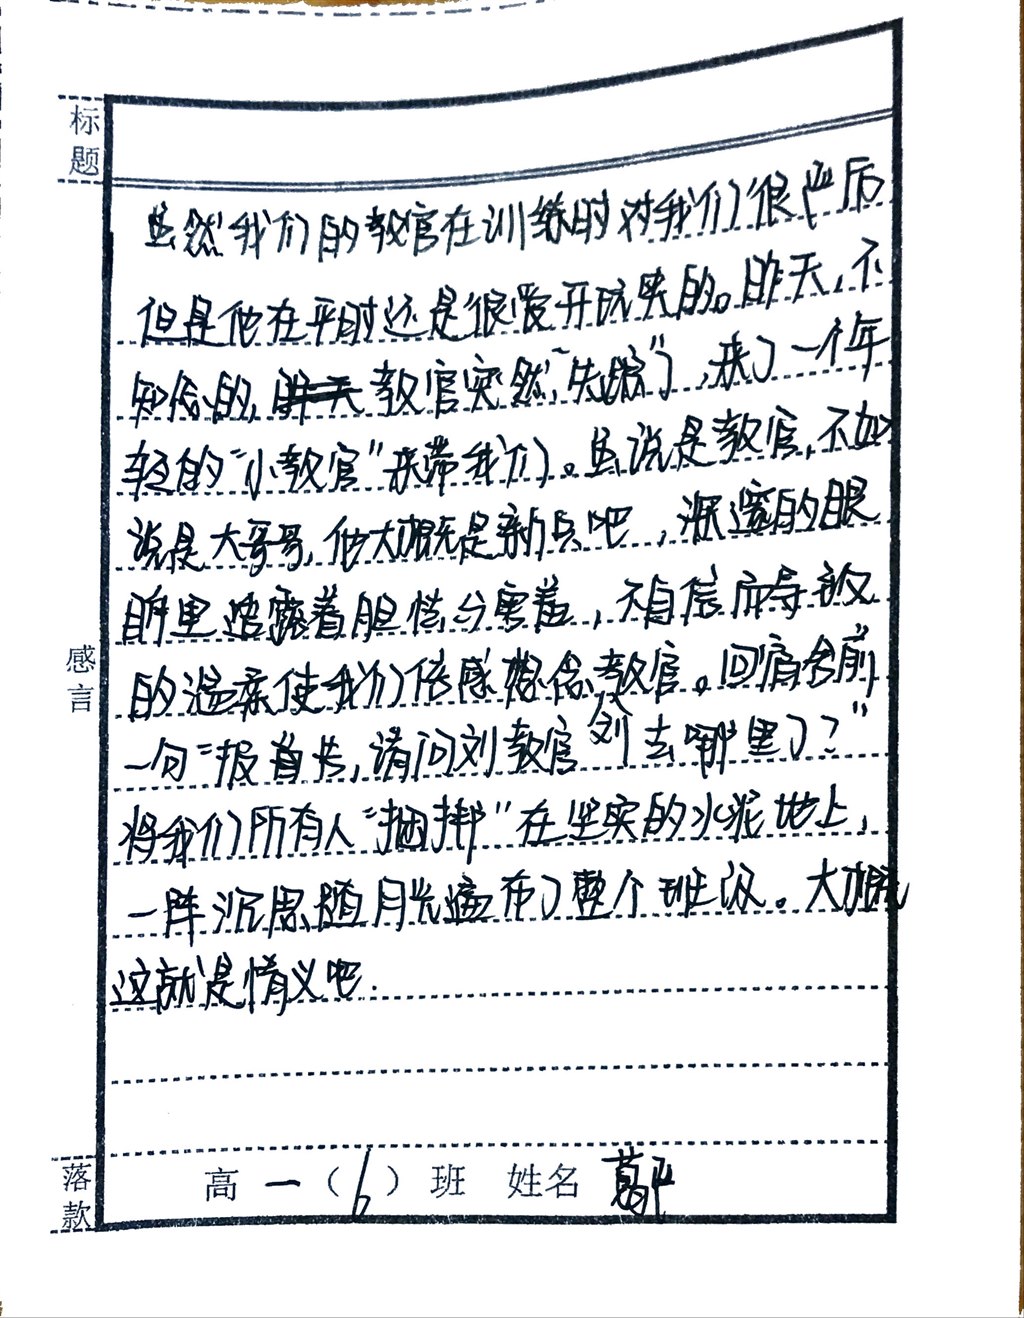 标题
虽然我们的教官在训练时对我们很严厉
但是他在平时还是很爱开玩笑的。昨天,不
知怎的,教官突然“失踪”了,来了一个年
轻的“小教官”来带我们。虽说是教官,不如
说是大哥哥,他大概是新兵吧,深邃的眼
眸里透露着胆怯与害羞,不自信而导致
的温柔使我们倍感想念教官。回宿舍前
一句“报首长,请问刘教官去哪里了?”
将我们所有人“捆绑”在坚实的水泥地上,
一阵沉思随月光遍布了整个班级。大概
这就是情义吧.
感言
落款
高一(6)班 姓名 葛